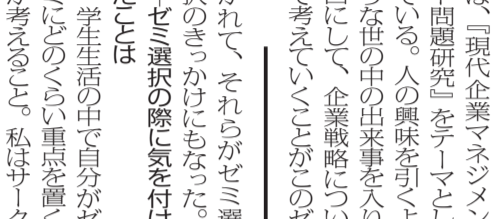 は、『現代企業マネジメン
問題研究』をテーマとし
ている。人の興味を引くよ
うな世の中の出来事を入り
口にして、企業戦略につい
て考えていくことがこのゼ
かれて、それらがゼミ選
択のきっかけにもなった。
―ゼミ選択の際に気を付け
たことは
学生生活の中で自分がゼ
ミにどのくらい重点を置く
か考えること。私はサーク